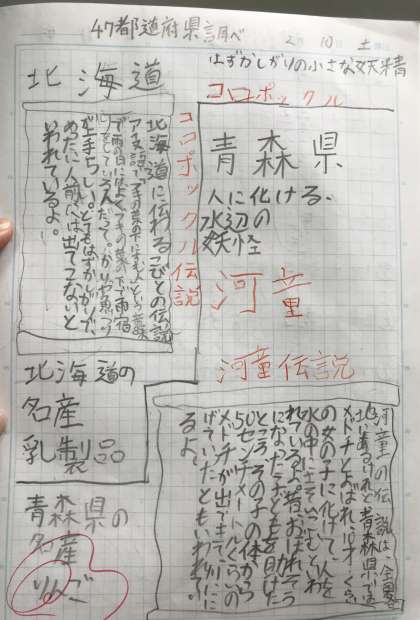 47都道府県調べ
2月10日 土
はずかしがりの小さな妖精
北海道
コロポックル
コロポックル伝説
北海道に伝わるこびとの伝説
アイヌ語で「ふきの葉の下にすむ人」という意味
で雨の日にはよくフキの葉の下で雨宿
りをしているんだって。かりや魚つり
が上手らしい。とてもはずかしがりで、
めったに人前へは出てこないと
いわれているよ。
青森県
人に化ける、
水辺の
妖怪
河童
河童伝説
河童の伝説は、全国各
地にあるけれど、青森県では
メドチとよばれ、10才くらい
の女の子に化けて、人を
水の中にさそいこむといわ
れているよ。昔、おぼれそう
になった子どもを助けた
ところ、その子の体から
15センチメートルくらいの
メドチが出てきて川に
にげていったともいわれてい
るよ。
北海道の
名産
乳製品
青森県の
名産
りんご